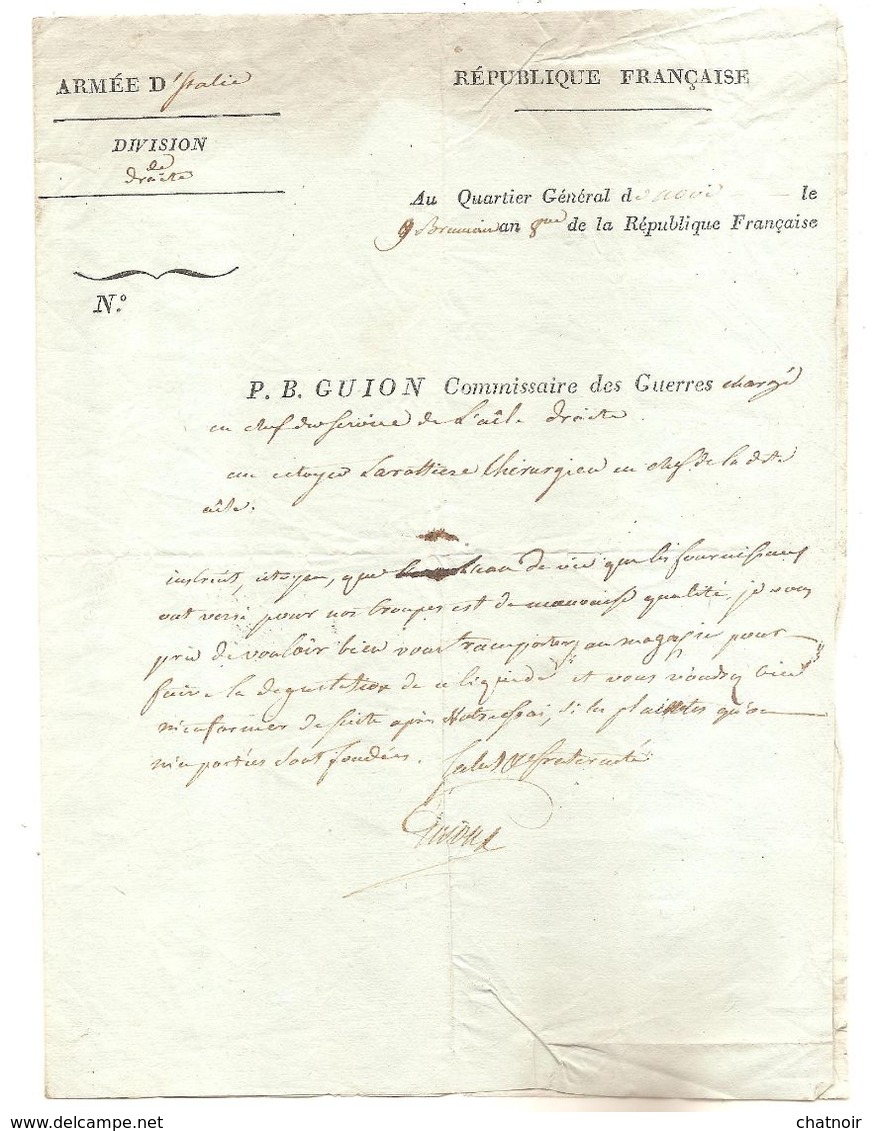 ARMÉE D'Italie
DIVISION
de
droite
N.º
RÉPUBLIQUE FRANÇAISE
Au Quartier Général de novi le
9 Brumaire an 8me de la République Française
P. B. GUION Commissaire des Guerres chargé
en chef du service de L'aîle droite
au citoyen Larottiere Chirurgien en chef de la dte
aîle.
instruit, citoyen, que eau de vie que les fournisseurs
ont versé pour nos troupes est de mauvaise qualité, je vous
prie de vouloir bien vous transporter au magasin pour
faire la degustation de ce liquide et vous voudrez bien
m'informer de suite après Votre essai, si les plaintes qu'on
m'en portées sont fondées.
Salut & fraternité
Guion
delcampe.net
chatnoir